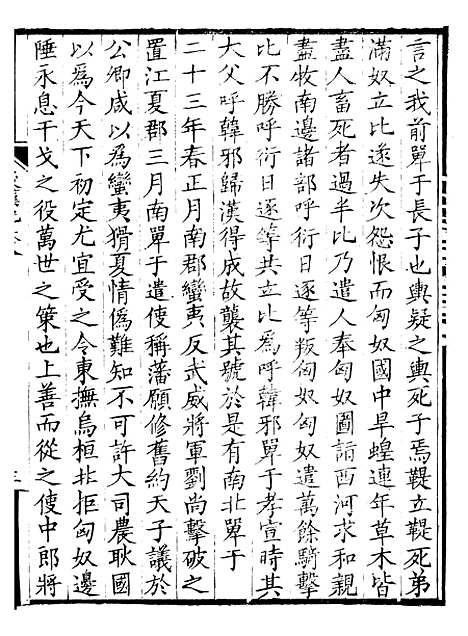 言之我前單于長子也輿疑之輿死子焉鞮立鞮死弟
滿奴立比遂失次怨恨而匈奴國中旱蝗連年草木皆
盡人畜死者過半比乃遣人奉匈奴圖詣西河求和親
盡收南邊諸部呼衍日逐等叛匈奴匈奴遣萬餘騎擊
比不勝呼衍日逐等共立比爲呼韓邪單于孝宣時其
大父呼韓邪歸漢得成故襲其號於是有南北單于
二十三年春正月南郡蠻夷反武威將軍劉尚擊破之
置江夏郡三月南單于遣使稱藩願修舊約天子議於
公卿咸以爲蠻夷猾夏情僞難知不可許大司農耿國
以爲今天下初定尤宜受之令東撫烏桓北拒匈奴邊
陲永息干戈之役萬世之策也上善而從之使中郎將
三